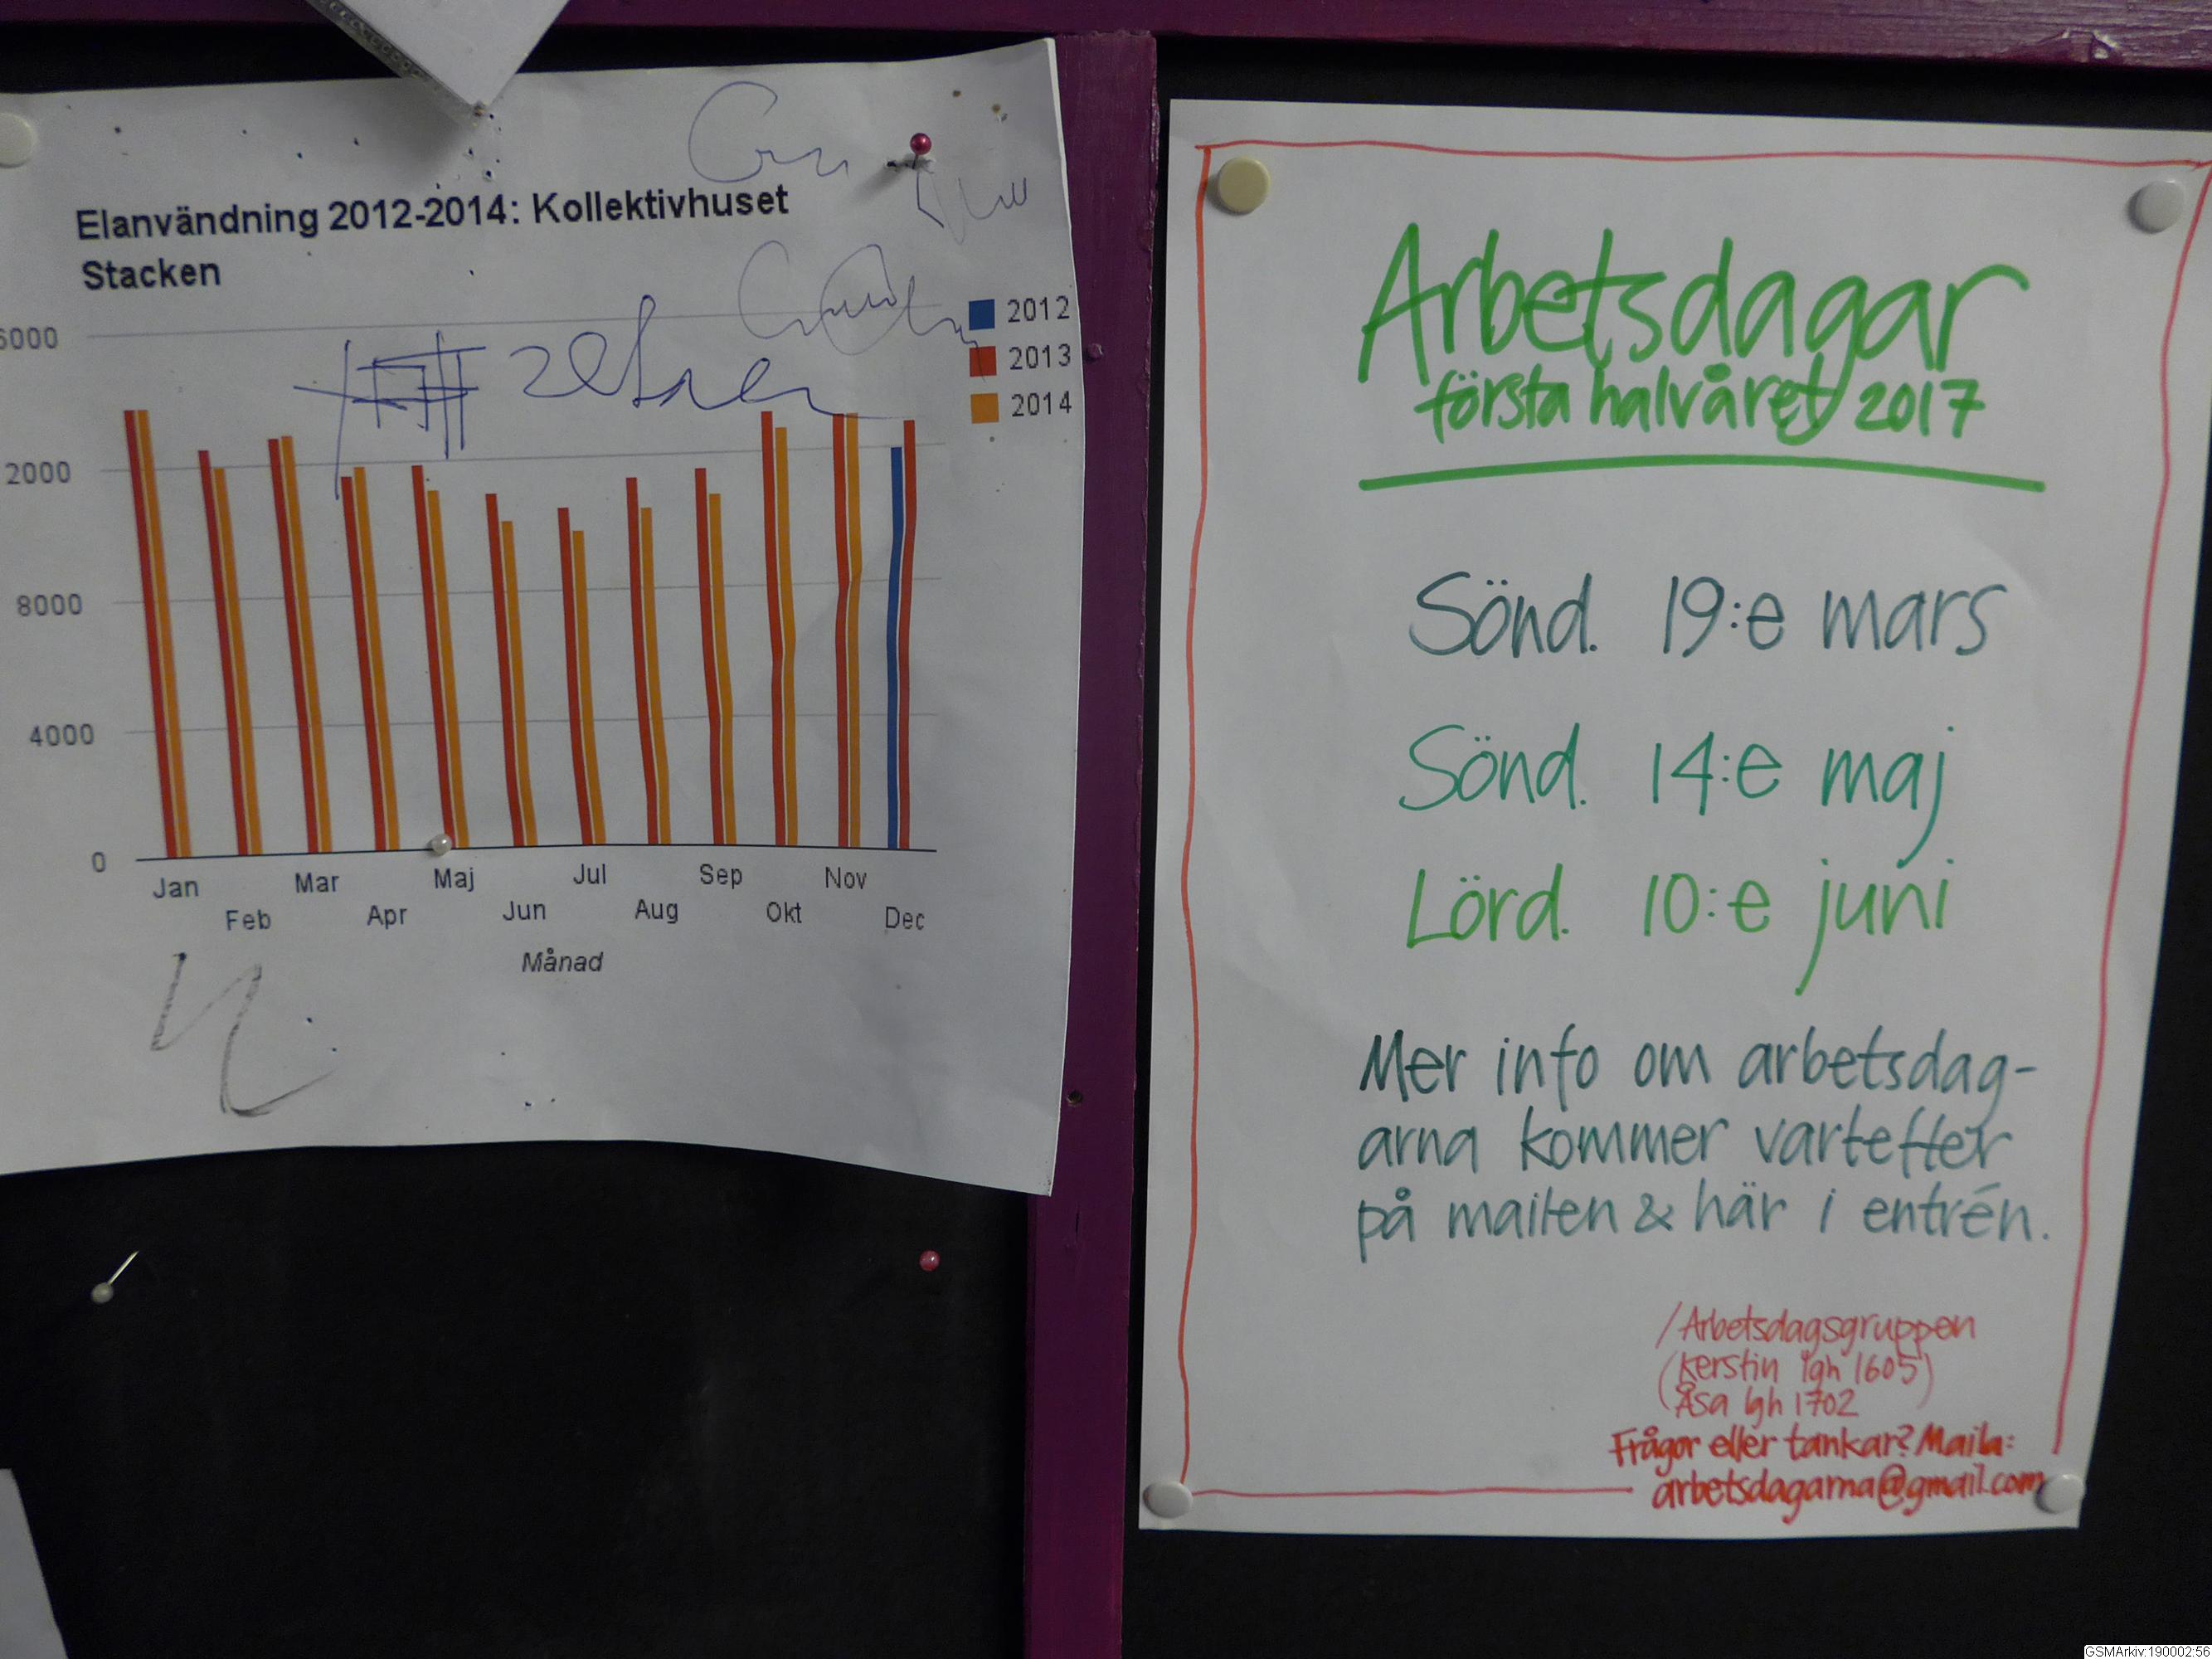 Elanvändning 2012-2014: Kollektivhuset
Stacken
2012
2013
2014
6000
2000
8000
4000
0
Jan
Feb
Mar
Apr
Maj
Jun
Jul
Aug
Sep
Okt
Nov
Dec
Månad
Arbetsdagar
första halvåret 2017
Sönd. 19:e mars
Sönd. 14:e maj
Lörd. 10:e juni
Mer info om arbetsdag-
arna kommer vartefter
på mailen & här i entrén.
/Arbetsdagsgruppen
(Kerstin lgh 1605)
(Åsa lgh 1702
Frågor eller tankar? Maila:
arbetsdagarna@gmail.com
GSMArkiv:190002:56